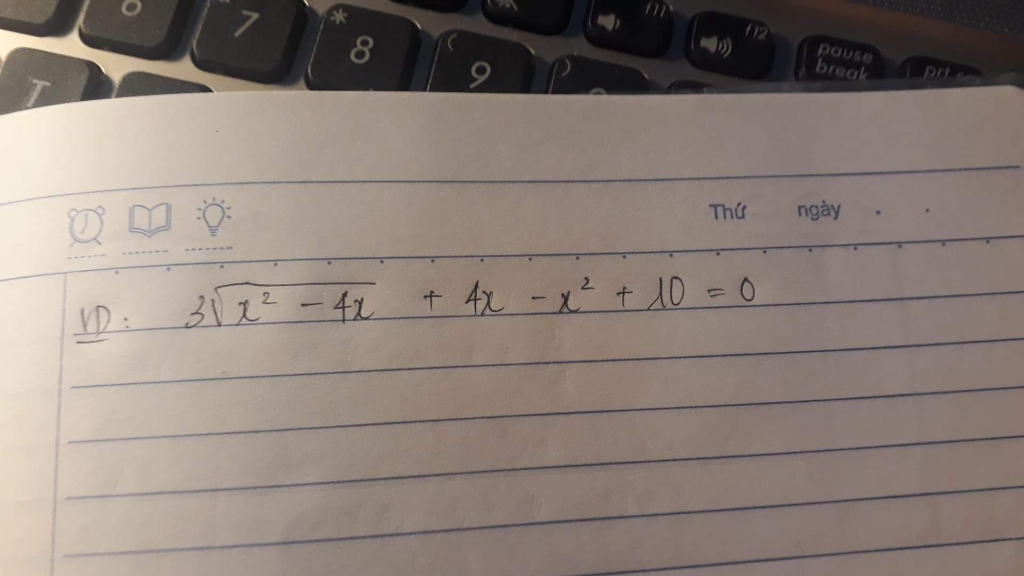 6 7 * 8 ( 9 ) f11 f12 pause break prt sc
T
Thứ ngày
VD: 3√x² - 4x + 4x - x² + 10 = 0